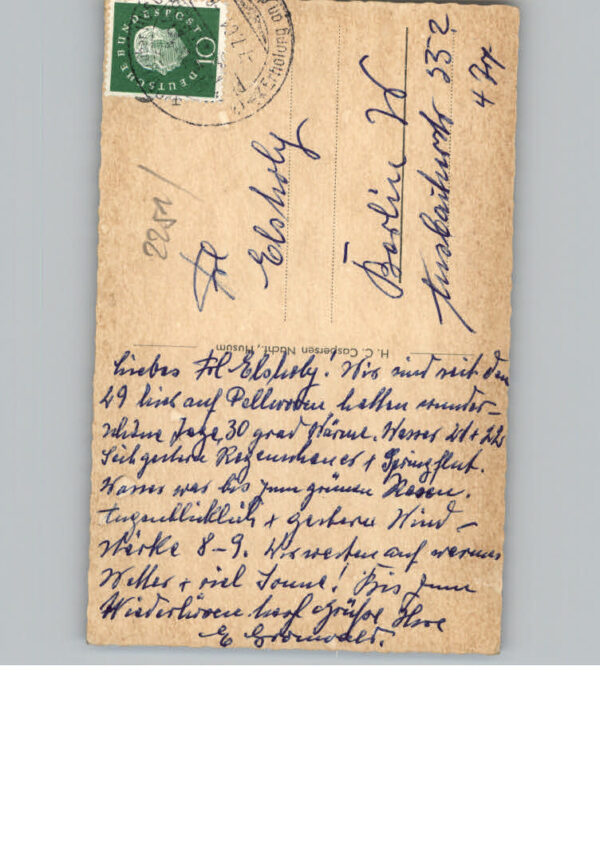 DEUTSCHE BUNDESPOST
10
Erholung
2251/
Frl
Elsholz
Berlin W
Ansbacherstr 55 2
4 Trp
H. C. Caspersen Nachf., Husum
Liebes Frl Elsholz! Wir sind seit dem
29 hier auf Pellworm hatten wunder-
schöne Tage, 30 grad Wärme. Wasser 21 + 22
Seit gestern Regenschauer + Springflut.
Wasser war bis zum grünen Rasen.
Augenblicklich + gestern Wind-
stärke 8-9. Wir warten auf warmes
Wetter + viel Sonne! Bis zum
Wiederhören herzl Grüße Ihre
E Gronwald.